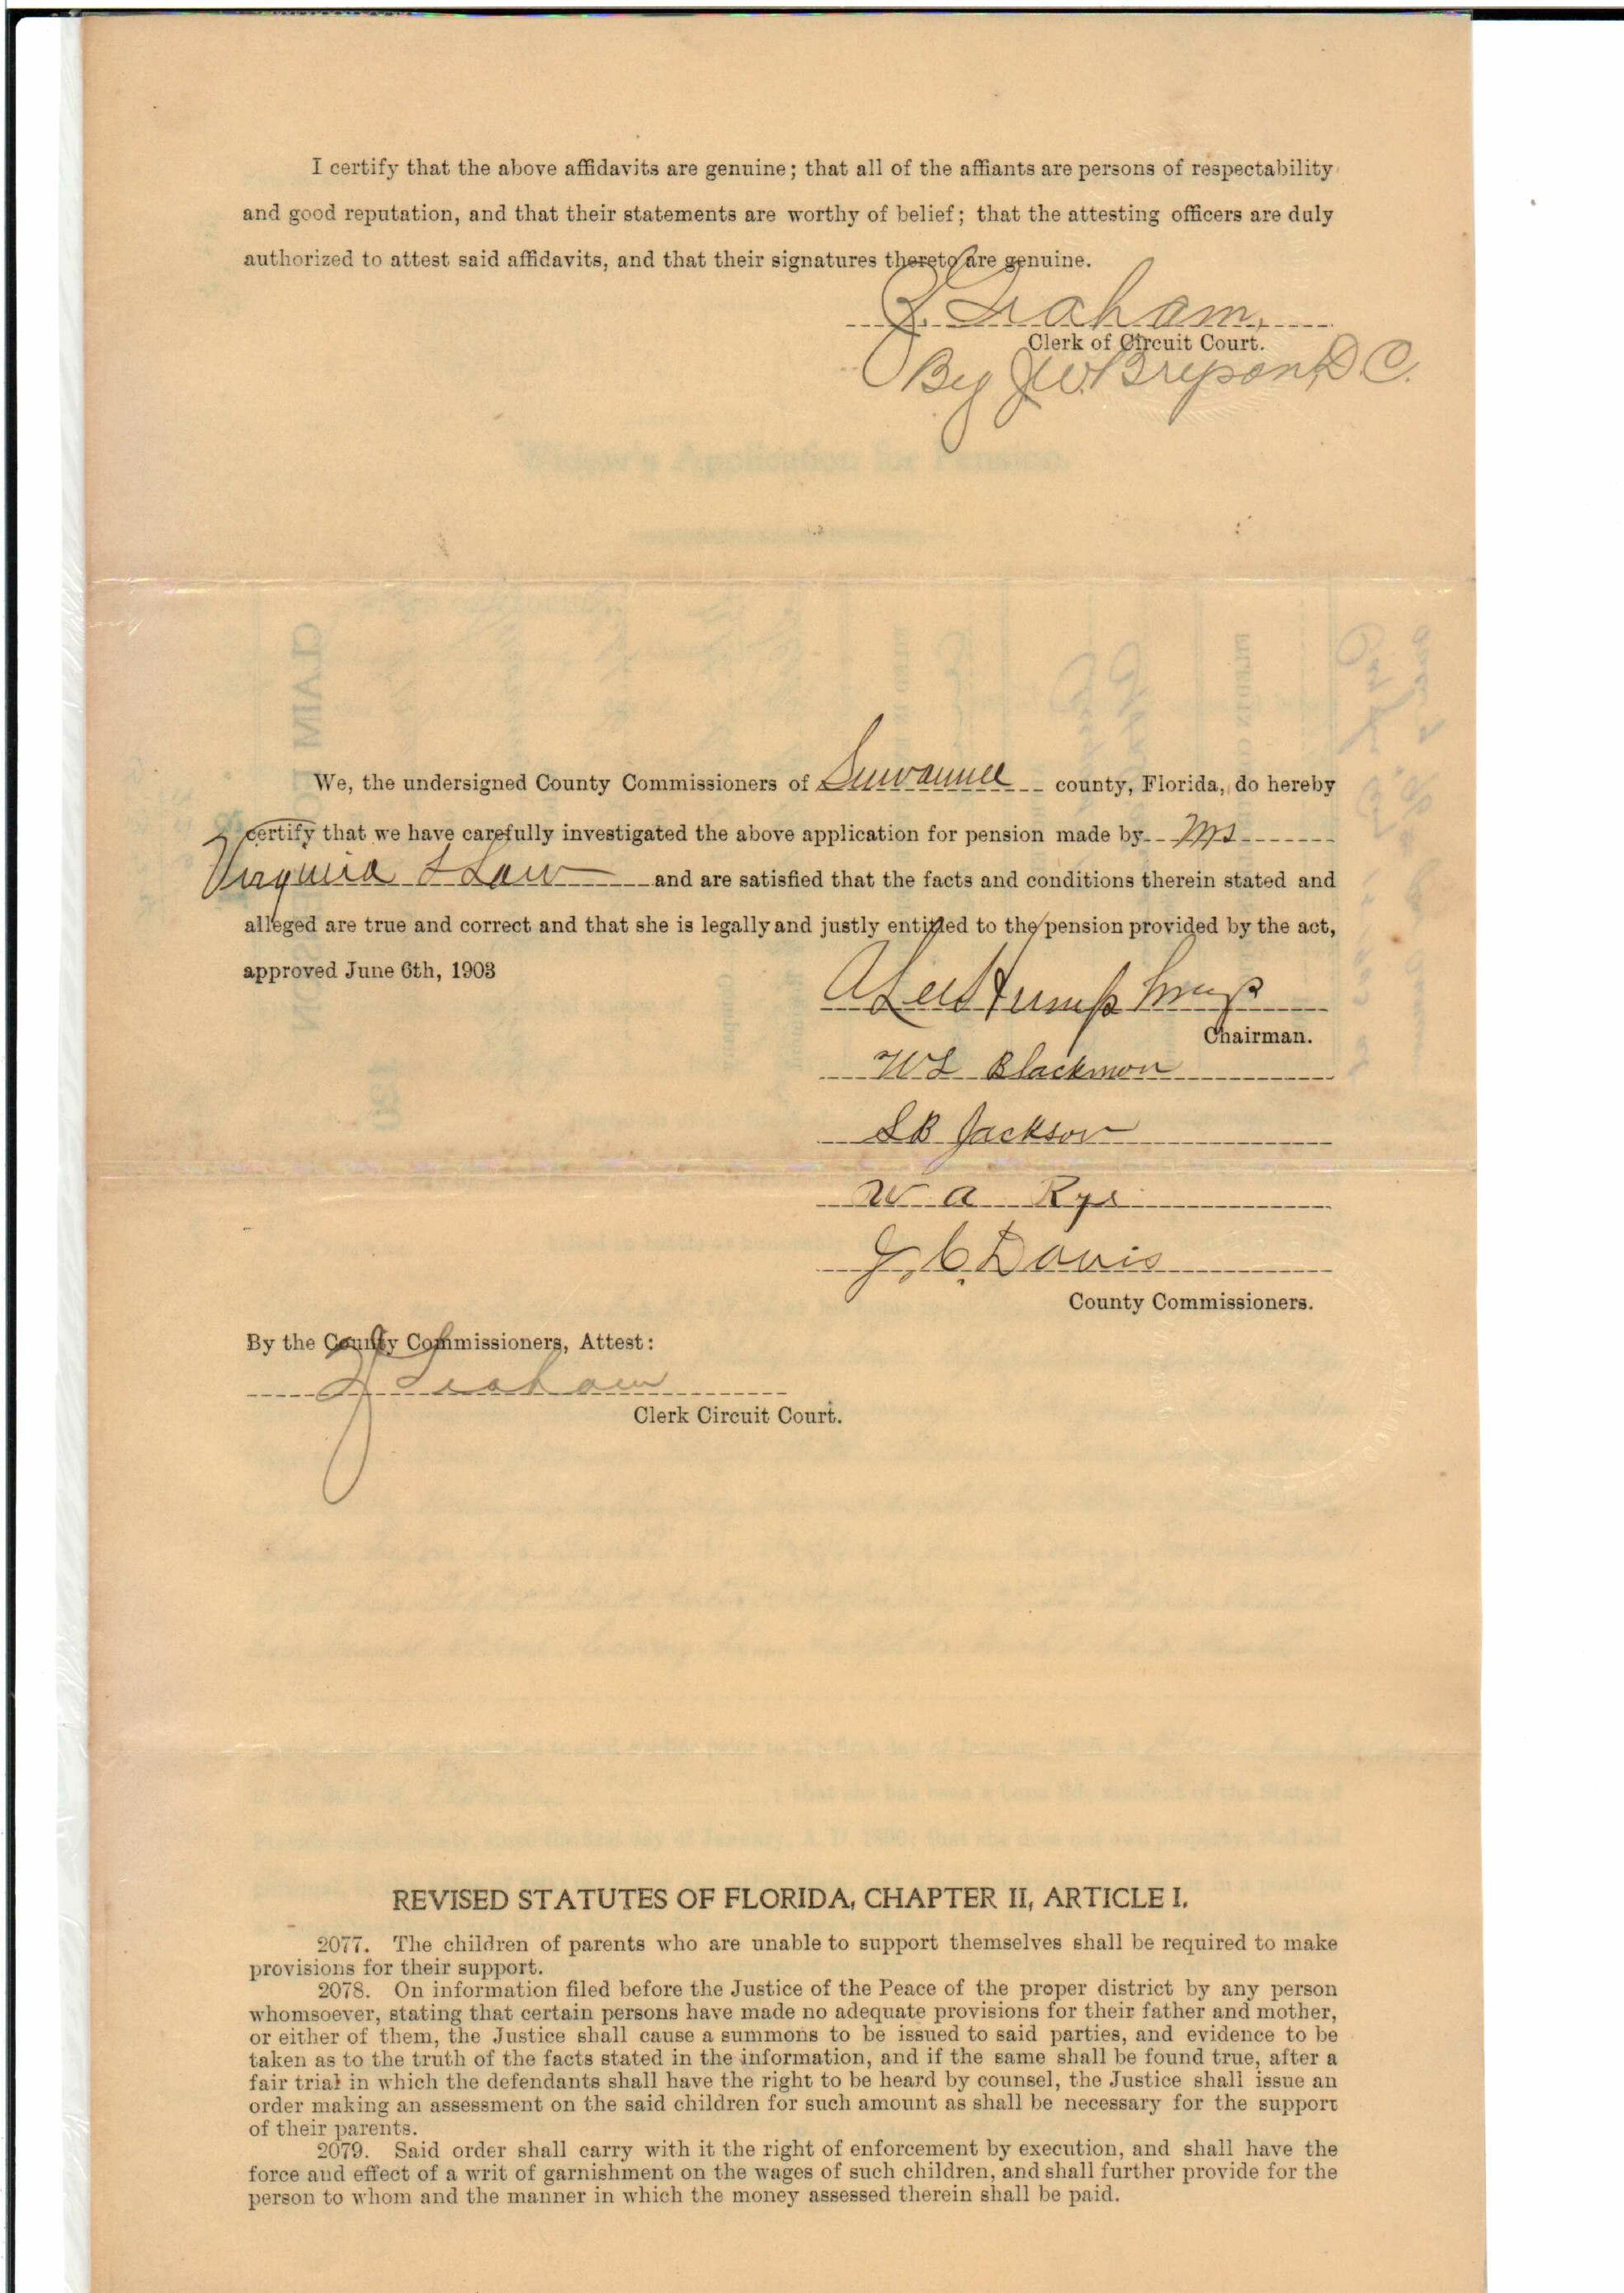 I certify that the above affidavits are genuine; that all of the affiants are persons of respectability
and good reputation, and that their statements are worthy of belief; that the attesting officers are duly
authorized to attest said affidavits, and that their signatures thereto are genuine.
J. Graham,
Clerk of Circuit Court.
By J W Bryson, D C.
We, the undersigned County Commissioners of Suwannee county, Florida, do hereby
certify that we have carefully investigated the above application for pension made by Mrs
Virginia L Law and are satisfied that the facts and conditions therein stated and
alleged are true and correct and that she is legally and justly entitled to the pension provided by the act,
approved June 6th, 1903
A Lee Humphreys
Chairman.
W L Blackmon
S B Jackson
W A Rys
J. C. Davis
County Commissioners.
By the County Commissioners, Attest:
J Graham
Clerk Circuit Court.
REVISED STATUTES OF FLORIDA, CHAPTER II, ARTICLE I.
2077. The children of parents who are unable to support themselves shall be required to make
provisions for their support.
2078. On information filed before the Justice of the Peace of the proper district by any person
whomsoever, stating that certain persons have made no adequate provisions for their father and mother,
or either of them, the Justice shall cause a summons to be issued to said parties, and evidence to be
taken as to the truth of the facts stated in the information, and if the same shall be found true, after a
fair trial in which the defendants shall have the right to be heard by counsel, the Justice shall issue an
order making an assessment on the said children for such amount as shall be necessary for the support
of their parents.
2079. Said order shall carry with it the right of enforcement by execution, and shall have the
force and effect of a writ of garnishment on the wages of such children, and shall further provide for the
person to whom and the manner in which the money assessed therein shall be paid.